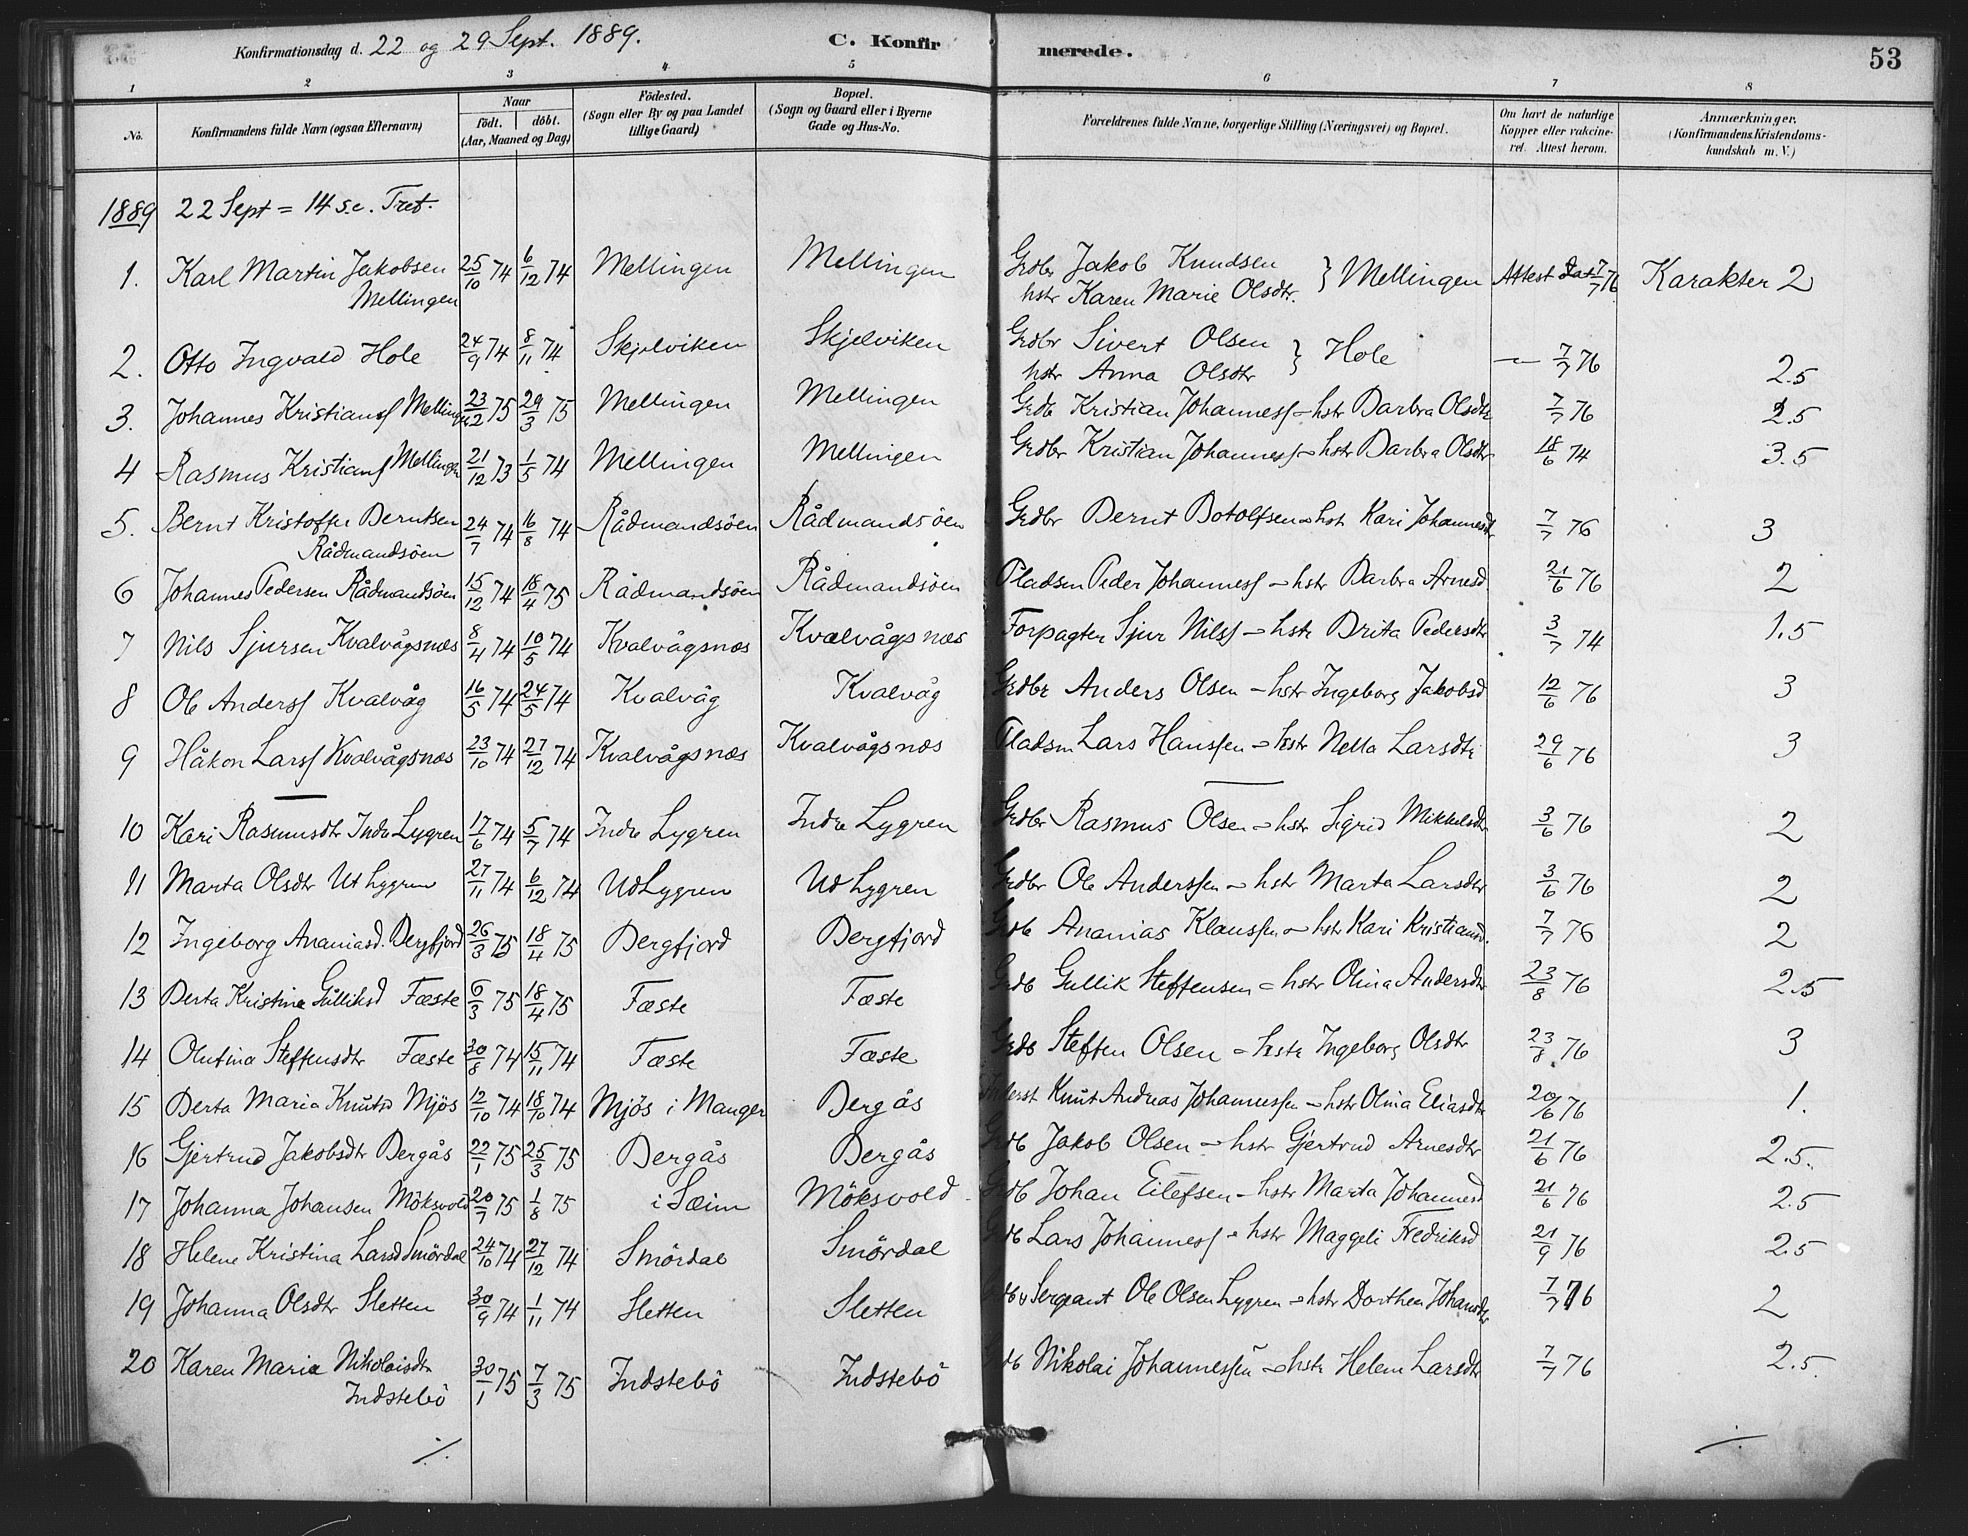 Konfirmationsdag d. 22 og 29 Sept. 1889. C. Konfirmerede. 53
1 2 3 4 5 6 7 8
No. Konfirmandens fulde Navn (ogsaa Efternavn) Naar födt. döbt. (Aar, Maaned og Dag) Födested. (Sogn eller By og paa Landet tillige Gaard) Bopæl. (Sogn og Gaard eller i Byerne Gade og Hus-No. Forældrenes fulde Navne, borgerlige Stilling (Næringsvei) og Bopæl. Om havt de naturlige Kopper eller vakcineret. Attest herom. Anmærkninger. (Konfirmandens Kristendomskundskab m. V.)
1889 22 Sept = 14 s.e. Tref.
1. Karl Martin Jakobsen Mellingen 25/10 74 6/12 74 Mellingen Mellingen Grdbr Jakob Knudsen hstr Karen Marie Olsdtr. } Mellingen Attest 7/7 76 Karakter 2
2. Otto Ingvald Hole 24/9 74 8/11 74 Skjelviken Skjelviken Grdbr Sivert Olsen hstr Anna Olsdtr } Hole — 7/7 76 2.5
3. Johannes Kristians Mellingen 23/2 75 29/3 75 Mellingen Mellingen Grdb Kristian Johanness – hstr Barbra Olsdtr 7/7 76 2.5
4 Rasmus Kristians Mellingen 21/12 73 1/5 74 Mellingen Mellingen Grdbr Kristian Johanness – hstr Barbra Olsdtr 18/6 74 3.5
5. Bernt Kristoffer Berntsen Rådmandsöen 24/7 74 16/8 74 Rådmandsöen Rådmandsöen Grdbr Bernt Botolfsen – hstr Kari Johannesdtr 7/7 76 3
6 Johannes Pedersen Rådmandsöen 15/12 74 18/4 75 Rådmandsöen Rådmandsöen Pladsm Peder Johanness – hstr Barbra Arnesd. 21/6 76 2
7 Nils Sjursen Kvalvågsnæs 8/4 74 10/5 74 Kvalvågsnæs Kvalvågsnæs Forpagter Sjur Nilss – hstr Brita Pedersdtr 3/7 74 1.5
8 Ole Anderss Kvalvåg 16/5 74 24/5 74 Kvalvåg Kvalvåg Grdbr Anders Olsen – hstr Ingeborg Jakobsd 12/6 76 3
9 Håkon Larss Kvalvågsnæs 23/10 74 27/12 74 Kvalvågsnæs Kvalvågsnæs Pladsm Lars Hanssen – hstr Nella Larsdtr 29/6 76 3
10 Kari Rasmusdtr Indre Lygren 17/6 74 5/7 74 Indre Lygren Indre Lygren Grdbr Rasmus Olsen – hstr Sigrid Mikkelsdtr 3/6 76 2
11 Marta Olsdtr Ut Lygren 27/11 74 6/12 74 Ud Lygren Ud Lygren Grdbr Ole Anderssen – hstr Marta Larsdtr 3/6 76 2
12 Ingeborg Ananiasd. Bergfjord 26/3 75 18/4 75 Bergfjord Bergfjord Grdb Ananias Klaussen – hstr Kari Kristiansd. 7/7 76 2
13 Berta Kristina Gulliksd Fæste 6/3 75 18/4 75 Fæste Fæste Grdb Gullik Steffensen – hstr Olina Andersdtr 23/8 76 2.5
14 Olutina Steffensdtr Fæste 30/8 74 15/11 74 Fæste Fæste Grdb Steffen Olsen – hstr Ingeborg Olsdtr 23/8 76 3
15 Berta Maria Knutsd Mjös 12/10 74 18/10 74 Mjös i Manger Bergås Knut Andreas Johannessen – hstr Olina Eliasdtr 20/6 76 1.
16 Gjertrud Jakobsdtr Bergås 22/1 75 25/3 75 Bergås Bergås Grdb Jakob Olsen – hstr Gjertrud Arnesdtr 21/6 76 2.5.
17 Johanna Johansen Möksvold 20/7 75 1/8 75 i Sæim Möksvold Grdb Johan Eilefsen – hstr Marta Johannesd 21/6 76 2.5
18 Helene Kristina Larsd Smördal 24/10 74 27/12 74 Smördal Smördal Grdb Lars Johanness – hstr Maggeli Fredriksd 21/9 76 2.5
19 Johanna Olsdtr Sletten 30/9 74 1/11 74 Sletten Sletten Sergeant Ole Olsen Lygren – hstr Dorthea Johansdtr 7/7 76 2
20 Karen Maria Nikolaisdtr Indstebö 30/1 75 7/3 75 Indstebö Indstebö Grdb Nikolai Johannessen – hstr Helene Larsdtr 7/7 76 2.5.